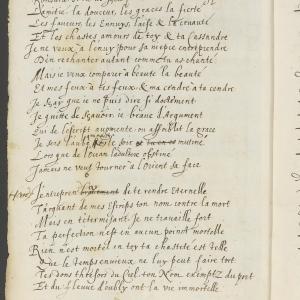 L'amitie, la douceur, les graces la fierté
Les faveurs, les Ennuys l'aise & la cruauté
Et les chastes amours de toy & ta Cassandre
Je ne veux à l'envy pour sa niepce entreprendre
D'en rechanter autant comme tu as chanté
Mais je veux comparer à beauté la beauté
Et mes feux à tes feux, & ma cendre à ta cendre
Je sçay que je ne puis dire si doctement
Je quitte de sçavoir, je brave d'argument
Qui de l'escript augmente, ou affoiblit la grace
Je sers l'aube le soir mutine
Lorsque de l'Ocean l'adultere obstiné
Jamais ne veux tourner à l'Orient sa face
J'entreprens de te rendre Eternelle
de mes Escrips ton nom contre la mort
Mais en t'eternisant je ne travaille fort
Ta perfection n'est en aucun poinct mortelle
Rien n'est mortel en toy ta chasteté est telle
Que le temps envieux ne luy peut faire tort
Tes dons thresors du Ciel ton Nom exemptz du port
Et du fleuve d'oubly ont la vie immortelle